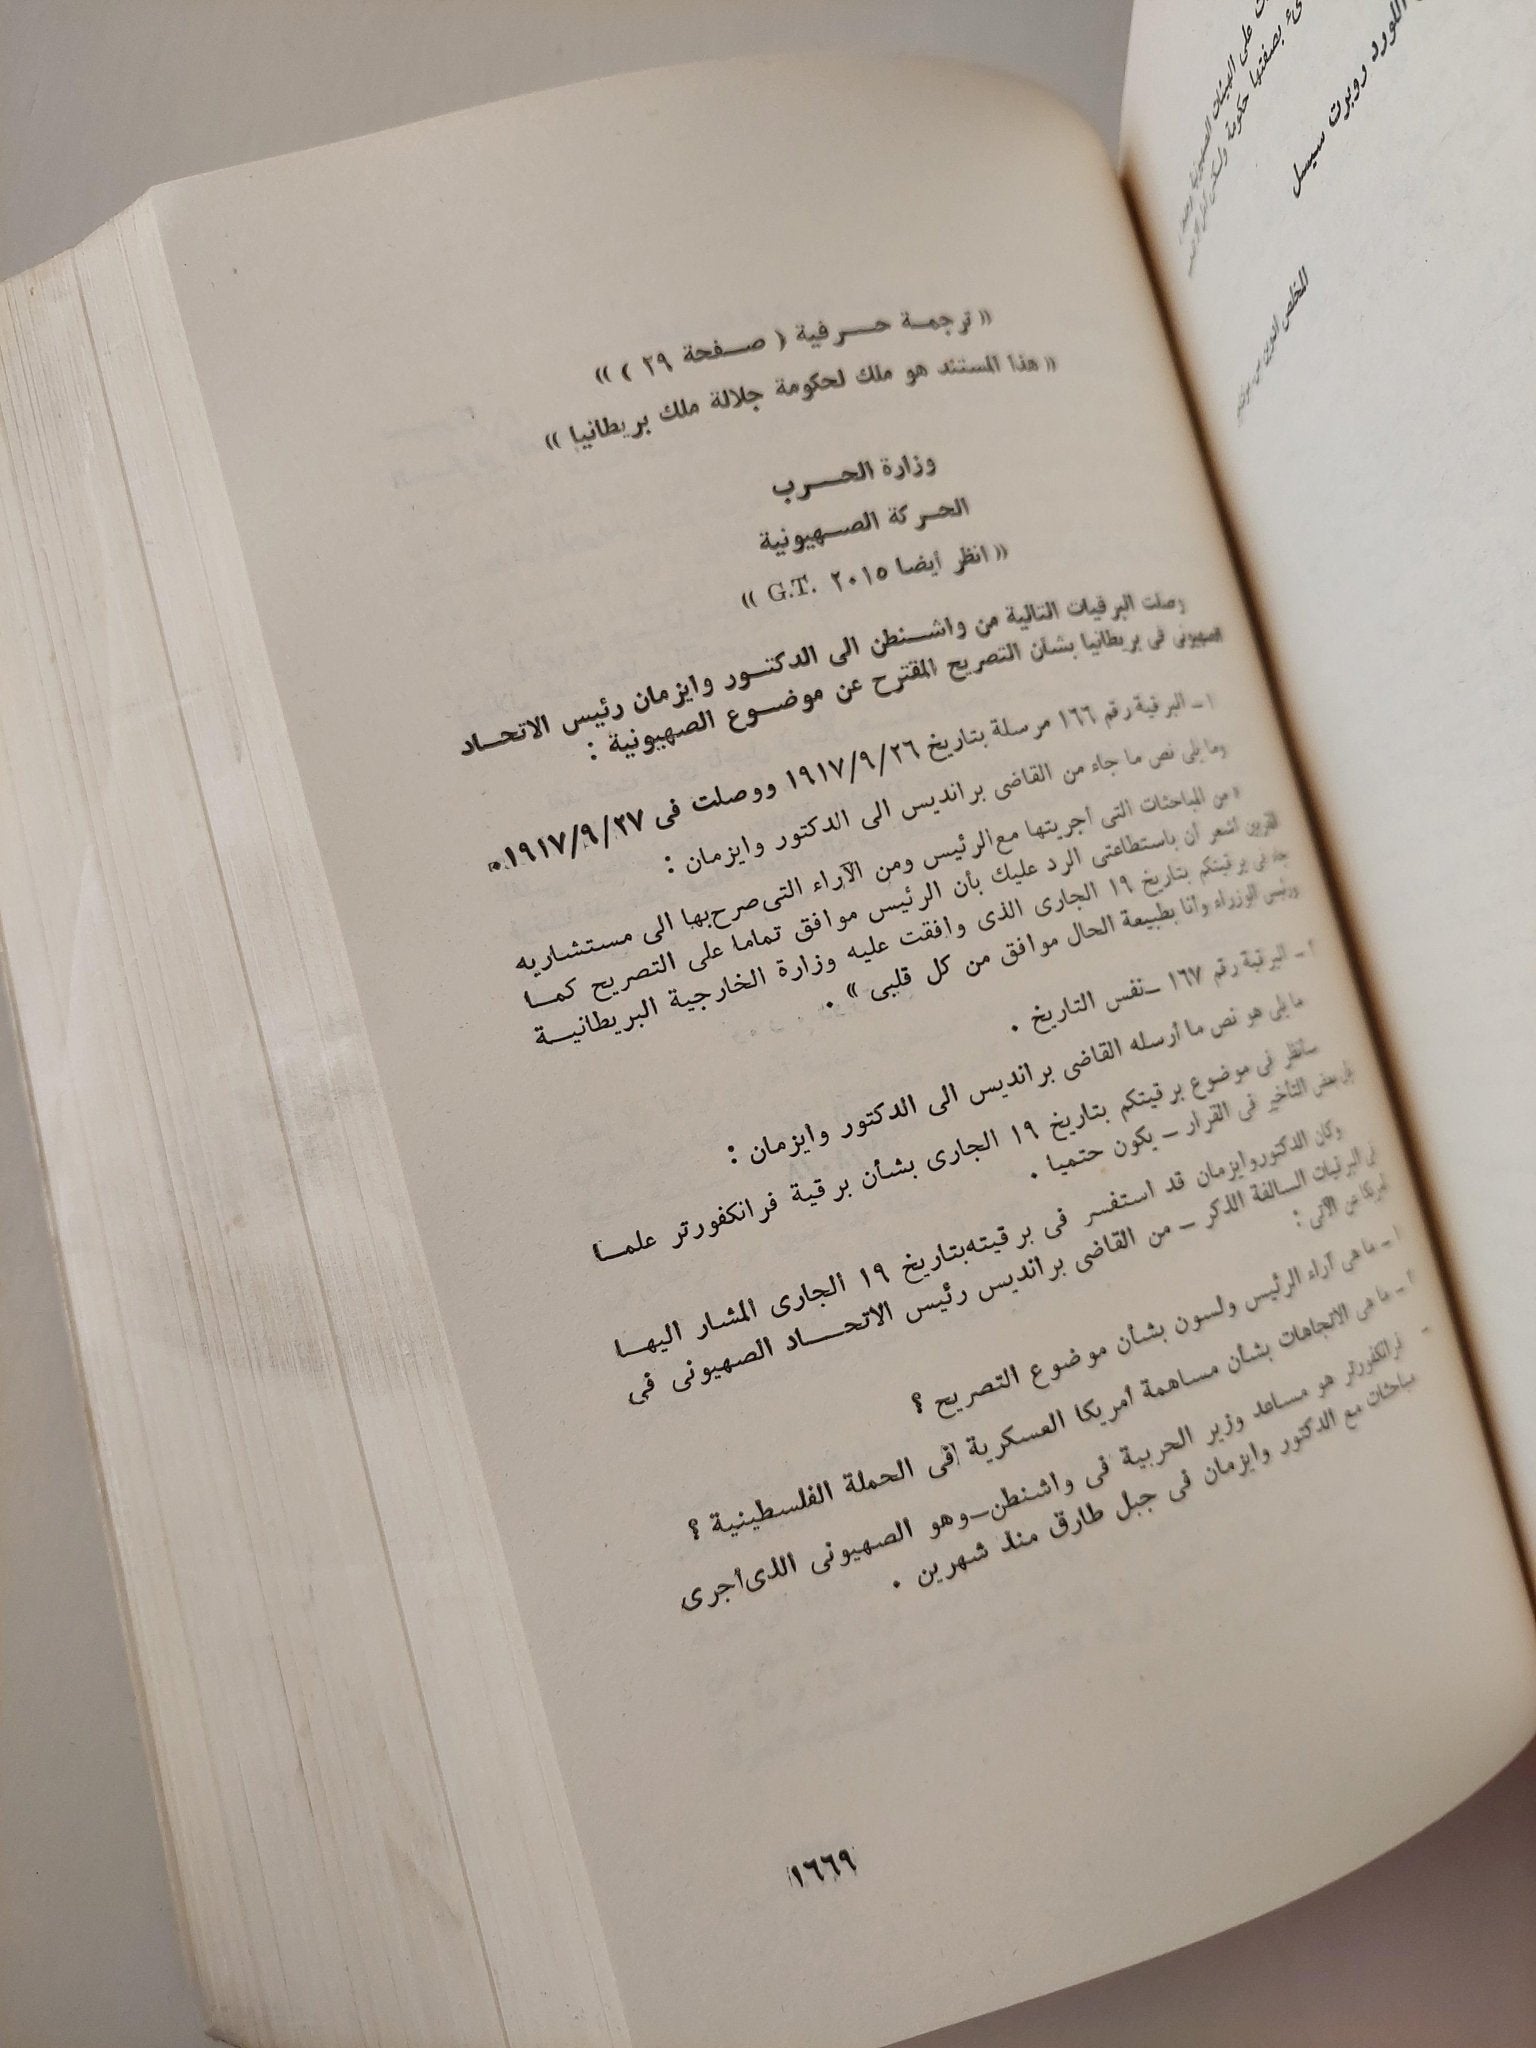 « ترجمة حرفية ( صفحة ٢٩ ) »
« هذا المستند هو ملك لحكومة جلالة ملك بريطانيا »
وزارة الحرب
الحركة الصهيونية
« انظر أيضا G.T. ٢٠١٥ »
وصلت البرقيات التالية من واشنطن الى الدكتور وايزمان رئيس الاتحاد
الصهيونى فى بريطانيا بشأن التصريح المقترح عن موضوع الصهيونية :
١ـ البرقية رقم ١٦٦ مرسلة بتاريخ ١٩١٧/٩/٢٦ ووصلت فى ١٩١٧/٩/٢٧ .
وما يلى نص ما جاء من القاضى برانديس الى الدكتور وايزمان :
« من المباحثات التى أجريتها مع الرئيس ومن الآراء التى صرح بها الى مستشاريه
المقربين أشعر أن باستطاعتى الرد عليك بأن الرئيس موافق تماما على التصريح كما
جاء فى برقيتكم بتاريخ ١٩ الجارى الذى وافقت عليه وزارة الخارجية البريطانية
ورئيس الوزراء وأنا بطبيعة الحال موافق من كل قلبى » .
ـ البرقية رقم ١٦٧ ـ نفس التاريخ .
ما يلى هو نص ما أرسله القاضى برانديس الى الدكتور وايزمان :
سأنظر فى موضوع برقيتكم بتاريخ ١٩ الجارى بشأن برقية فرانكفورتر علما
بعض التأخير فى القرار ـ يكون حتميا .
وكان الدكتور وايزمان قد استفسر فى برقيته بتاريخ ١٩ الجارى المشار اليها
فى البرقيات السالفة الذكر ـ من القاضى برانديس رئيس الاتحاد الصهيونى فى
أمريكا عن الآتى :
١ ـ ما هى آراء الرئيس ولسون بشأن موضوع التصريح ؟
ـ ما هى الاتجاهات بشأن مساهمة أمريكا العسكرية فى الحملة الفلسطينية ؟
ـ فرانكفورتر هو مساعد وزير الحربية فى واشنطن ـ وهو الصهيونى الذى أجرى
مباحثات مع الدكتور وايزمان فى جبل طارق منذ شهرين .
١٦٦٩
على الهيئات الصهيونية
بصفتها حكومة ولكن
اللورد روبرت سيسل
المخلص